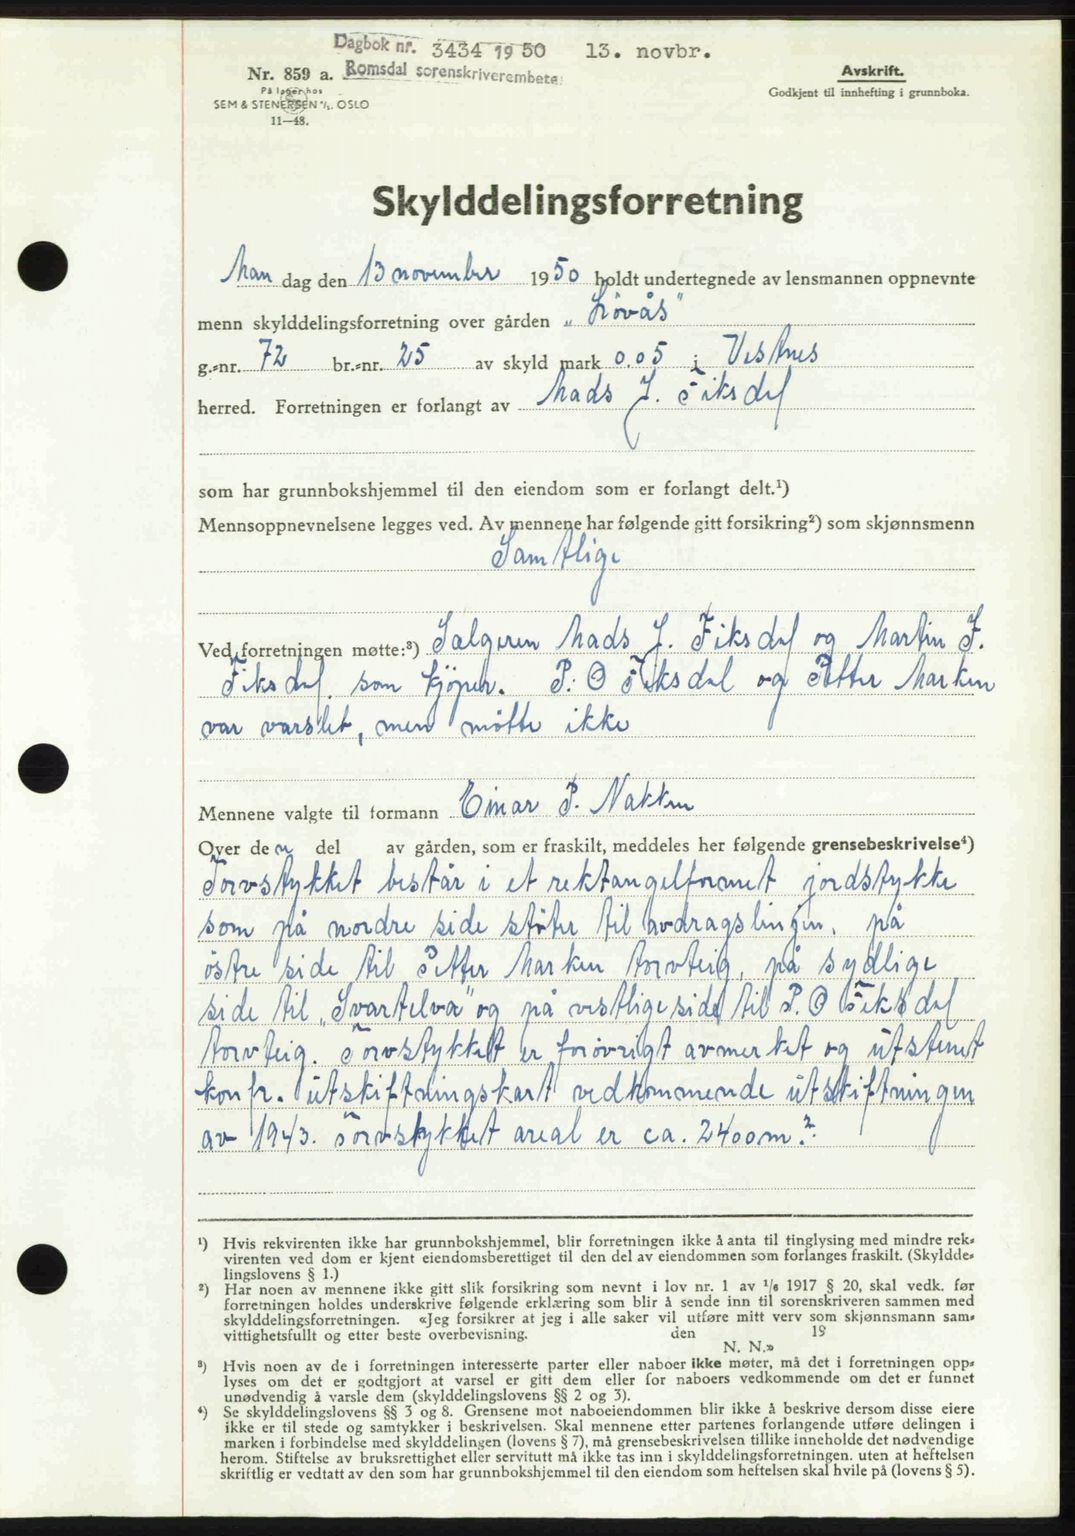 Dagbok nr. 3434 1950 13. novbr.
Romsdal sorenskriverembete
Nr. 859 a.
På lager hos
SEM & STENERSEN A/S. OSLO
11—48.
Avskrift.
Godkjent til innhefting i grunnboka.
Skylddelingsforretning
Man dag den 13 november 1950 holdt undertegnede av lensmannen oppnevnte
menn skylddelingsforretning over gården „Lövås"
g.-nr. 72 br.-nr. 25 av skyld mark 0.05 i Vestnes
herred. Forretningen er forlangt av Mads J. Fiksdal
som har grunnbokshjemmel til den eiendom som er forlangt delt.¹)
Mennsoppnevnelsene legges ved. Av mennene har følgende gitt forsikring²) som skjønnsmenn
Samtlige
Ved forretningen møtte:³) Selgeren Mads J. Fiksdal og Martin J.
Fiksdal som kjöper. P. O Fiksdal og Petter Marken
var varslet, men mötte ikke
Mennene valgte til formann Einar P. Nakken
Over den del av gården, som er fraskilt, meddeles her følgende grensebeskrivelse⁴)
Torvstykket består i et rektangelformet jordstykke
som på nordre side stöter til avdragslinjen, på
östre side til Petter Marken torvteig, på sydlige
side til „Svartelva" og på vestlige side til P. O Fiksdal
torvteig. Torvstykket er forövrigt avmerket og utstenet
konfr. utskiftningskart vedkommende utskiftningen
av 1943. Torvstykket areal er ca. 2400m².
¹) Hvis rekvirenten ikke har grunnbokshjemmel, blir forretningen ikke å anta til tinglysing med mindre rek-
virenten ved dom er kjent eiendomsberettiget til den del av eiendommen som forlanges fraskilt. (Skyldde-
lingslovens § 1.)
²) Har noen av mennene ikke gitt slik forsikring som nevnt i lov nr. 1 av ¹/₆ 1917 § 20, skal vedk. før
forretningen holdes underskrive følgende erklæring som blir å sende inn til sorenskriveren sammen med
skylddelingsforretningen. «Jeg forsikrer at jeg i alle saker vil utføre mitt verv som skjønnsmann sam-
vittighetsfullt og etter beste overbevisning. den 19
N. N.»
³) Hvis noen av de i forretningen interesserte parter eller naboer ikke møter, må det i forretningen opp-
lyses om det er godtgjort at varsel er gitt dem eller for naboers vedkommende om det er funnet
unødvendig å varsle dem (skylddelingslovens §§ 2 og 3).
⁴) Se skylddelingslovens §§ 3 og 8. Grensene mot naboeiendommen blir ikke å beskrive dersom disse eiere
ikke er til stede og samtykker i beskrivelsen. Skal mennene etter partenes forlangende utføre delingen i
marken i forbindelse med skylddelingen (lovens § 7), må grensebeskrivelsen tillike inneholde det nødvendige
herom. Stiftelse av bruksrettighet eller servitutt må ikke tas inn i skylddelingsforretningen. uten at heftelsen
skriftlig er vedtatt av den som har grunnbokshjemmel til den eiendom som heftelsen skal hvile på (lovens § 5).